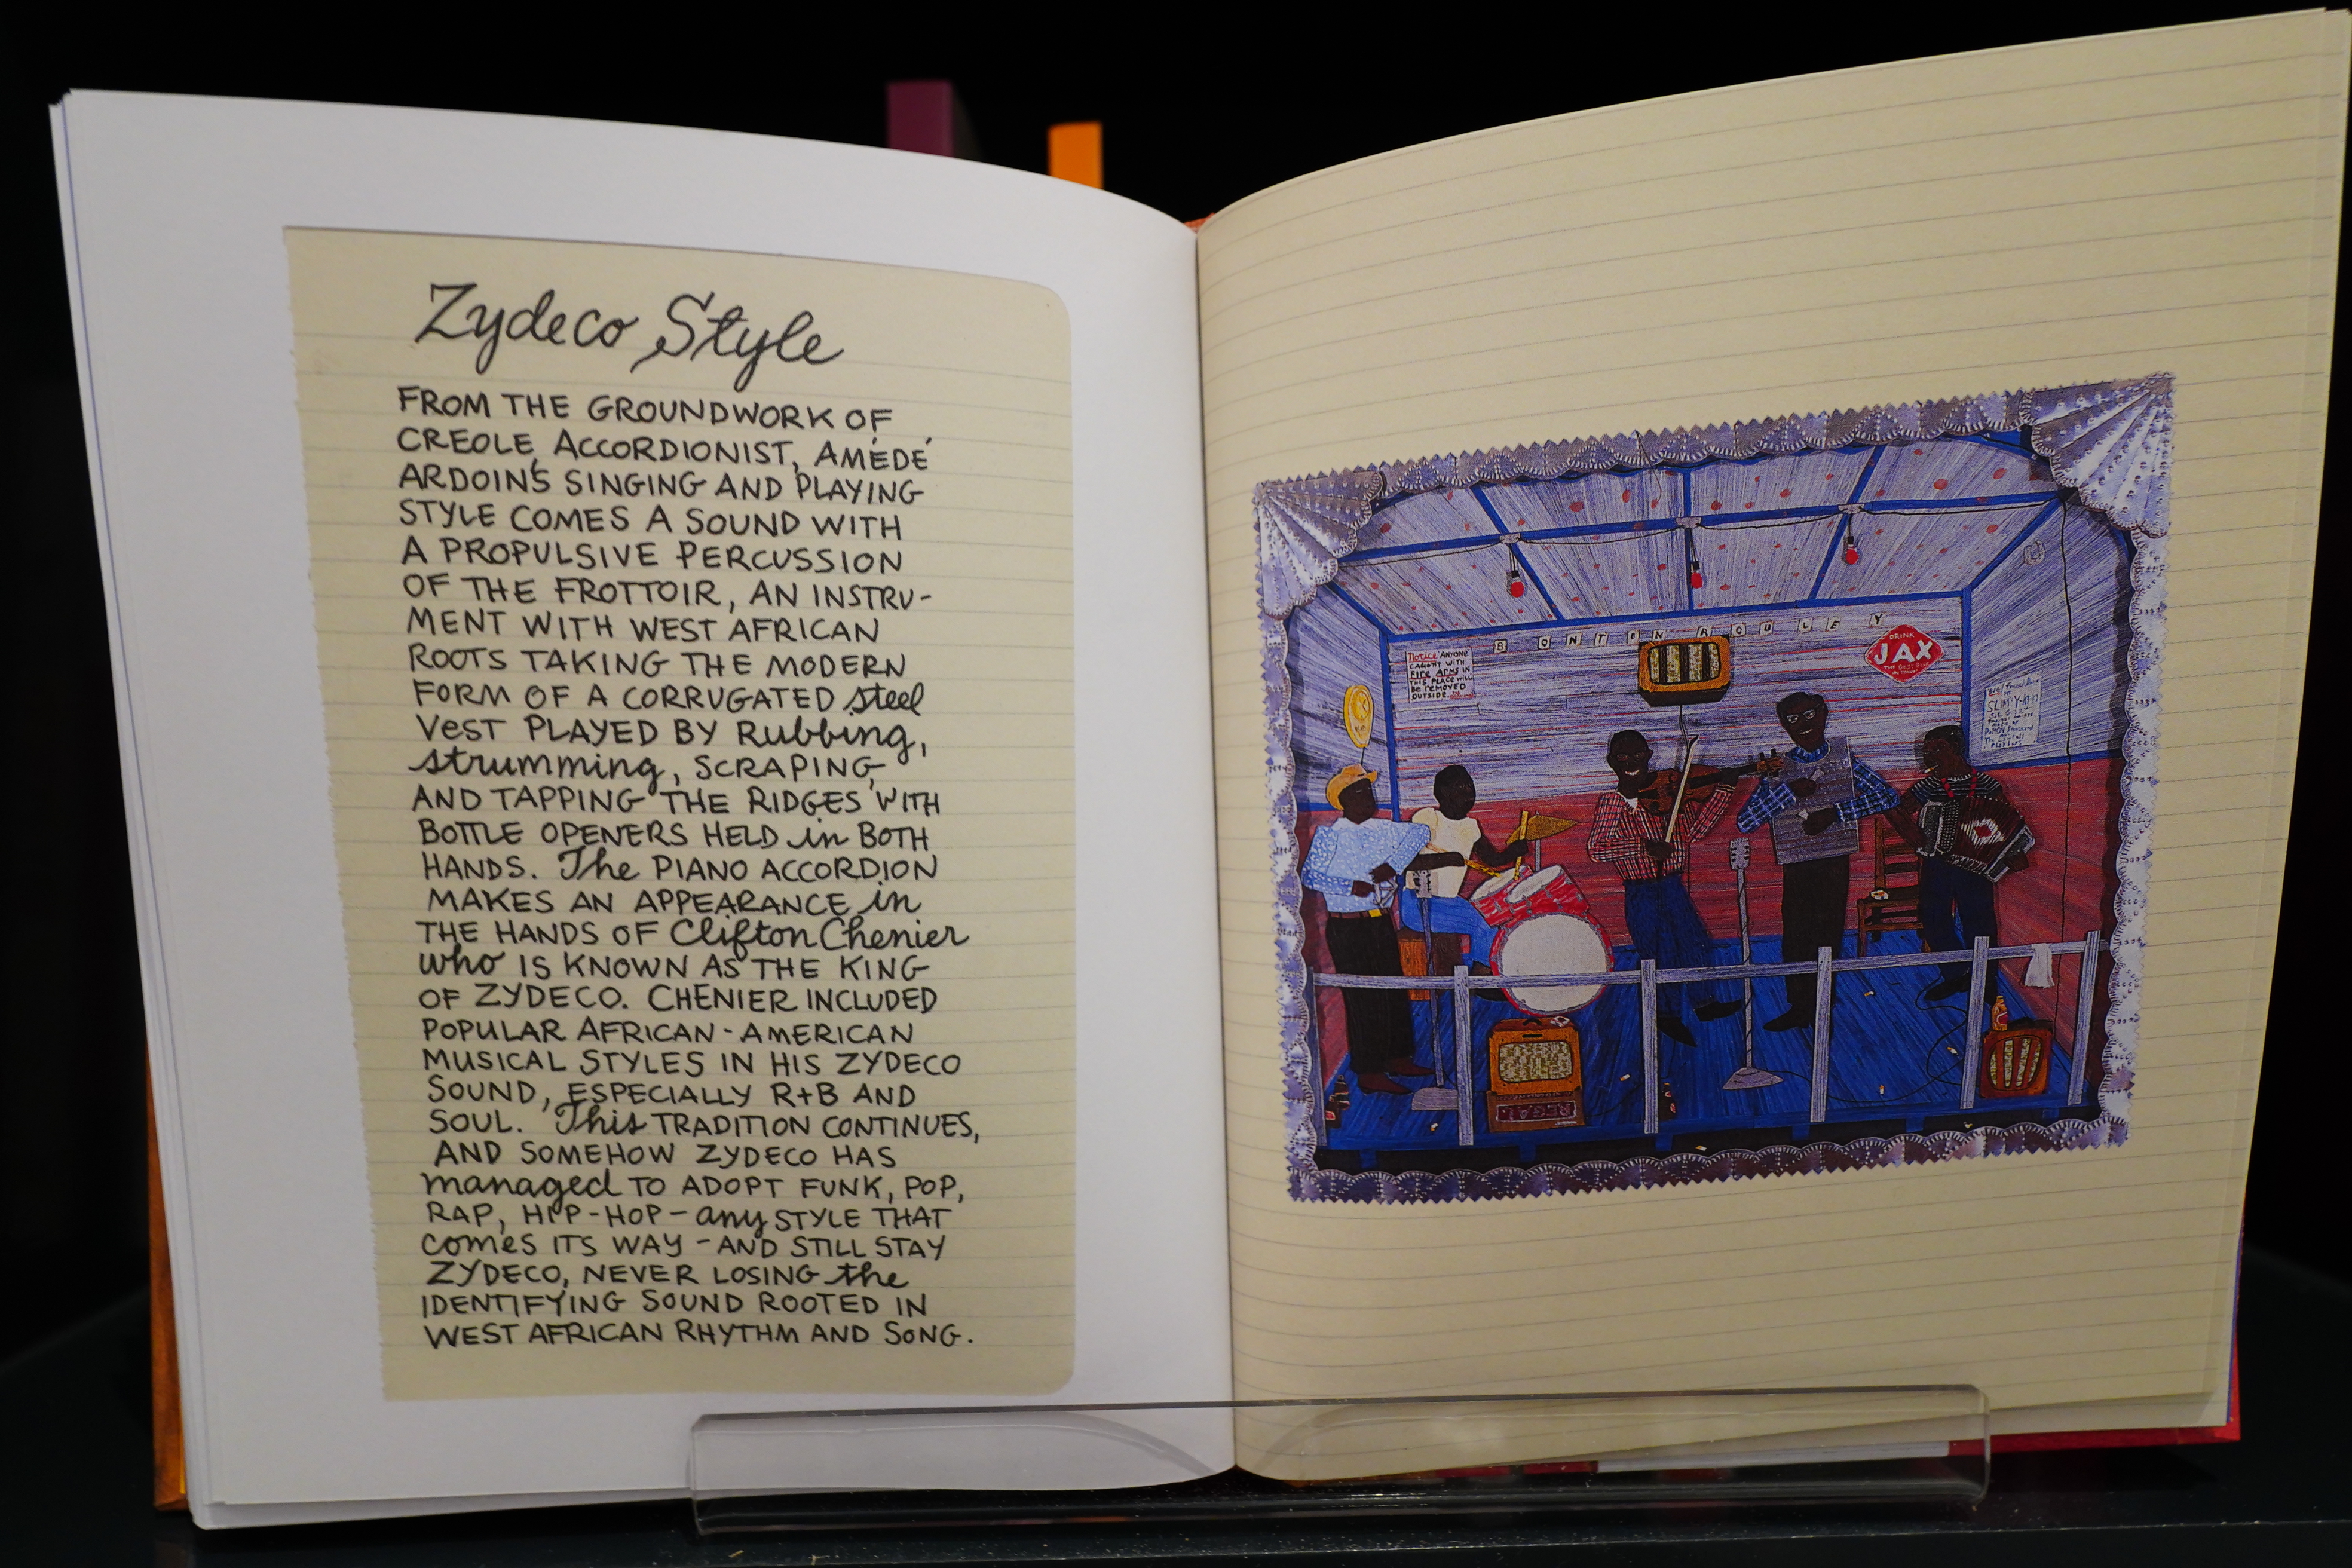 Zydeco Style
FROM THE GROUNDWORK OF
CREOLE ACCORDIONIST, AMÉDÉ
ARDOIN'S SINGING AND PLAYING
STYLE COMES A SOUND WITH
A PROPULSIVE PERCUSSION
OF THE FROTTOIR, AN INSTRU-
MENT WITH WEST AFRICAN
ROOTS TAKING THE MODERN
FORM OF A CORRUGATED steel
VEST PLAYED BY Rubbing,
strumming, SCRAPING,
AND TAPPING THE RIDGES WITH
BOTTLE OPENERS HELD in BOTH
HANDS. The PIANO ACCORDION
MAKES AN APPEARANCE in
THE HANDS OF Clifton Chenier
who IS KNOWN AS THE KING
OF ZYDECO. CHENIER INCLUDED
POPULAR AFRICAN-AMERICAN
MUSICAL STYLES IN HIS ZYDECO
SOUND, ESPECIALLY R+B AND
SOUL. This TRADITION CONTINUES,
AND SOMEHOW ZYDECO HAS
managed TO ADOPT FUNK, POP,
RAP, HIP-HOP - any STYLE THAT
comes ITS WAY - AND STILL STAY
ZYDECO, NEVER LOSING the
IDENTIFYING SOUND ROOTED IN
WEST AFRICAN RHYTHM AND SONG.
BON TON ROULEY
Notice ANYONE
CAUGHT WITH
FIRE ARMS IN
THIS PLACE WILL
BE REMOVED
OUTSIDE.
DRINK
JAX
SLIM'S Y-KI-KI
REGAL